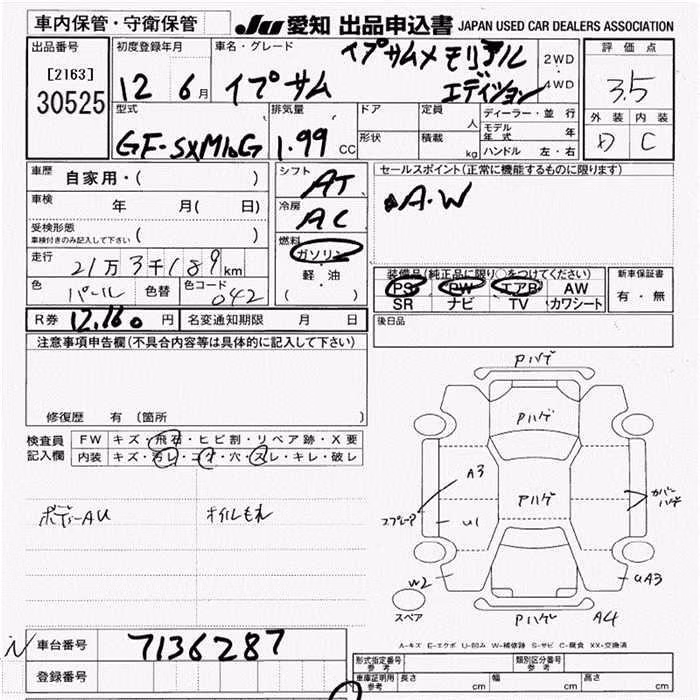 車内保管・守衛保管
JU 愛知 出品申込書 JAPAN USED CAR DEALERS ASSOCIATION
出品番号
[2163]
30525
初度登録年月
12 6月
車名・グレード
イプサムメモリアル
イプサム エディション
2WD
4WD
評価点
3.5
外装 内装
D C
型式
GF-SXM10G
排気量
1.99 CC
ドア
形状
定員 人
積載 kg
ディーラー・並行
モデル年式 年
ハンドル 左・右
車歴 自家用・( )
車検 年 月( 日)
受検形態
車検付きのみ記入して下さい ( )
走行 21万3千189km
色 パール 色替 色コード 042
シフト AT
冷房 AC
燃料
ガソリン
軽・油
( )
セールスポイント(正常に機能するものに限ります)
A.W
装備品(純正品に限り○をつけてください)
PS PW エアB AW
SR ナビ TV カワシート
新車保証書
有・無
R券 12,160円 名変通知期限 月 日
後日品
注意事項申告欄(不具合内容等は具体的に記入して下さい)
修復歴 有 〔箇所 〕
検査員記入欄
FW キズ・飛石・ヒビ割・リペア跡・X要
内装 キズ・汚レ・コゲ・穴・スレ・キレ・破レ
ボディーAU オイルもれ
Pハゲ
Pハゲ
A3
Pハゲ
カバーハゲ
U1
W2
UA3
スペア
Pハゲ A4
A-キズ E-エクボ U-凹み W-補修跡 S-サビ C-腐食 XX-交換済
車台番号 7136287
登録番号
形式指定番号 参考 類別区分番号 参考
車庫証明用 参考 長さ cm 幅 cm 高さ cm